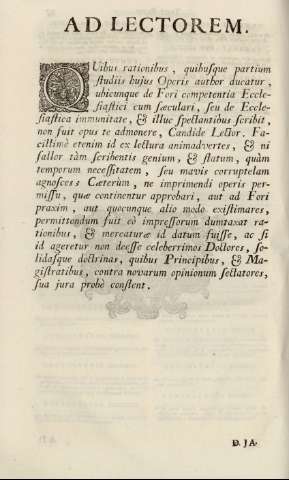 AD LECTOREM.
QUibus rationibus, quibusque partium
studiis hujus Operis author ducatur,
ubicunque de Fori competentia Eccle-
siastici cum sæculari, seu de Eccle-
siastica immunitate, & illuc spectantibus scribit,
non fuit opus te admonere, Candide Lector. Fa-
cillimè etenim id ex lectura animadvertes, & ni
fallor tàm scribentis genium, & statum, quàm
temporum necessitatem, seu mavis corruptelam
agnosces: Cæterùm, ne imprimendi operis per-
missu, quæ continentur approbari, aut ad Fori
praxim, aut quocunque alio modo existimares,
permittendum fuit eò impressorum dumtaxat ra-
tionibus, & mercaturæ id datum fuisse, ac si
id ageretur non deesse celeberrimos Doctores, so-
lidasque doctrinas, quibus Principibus, & Ma-
gistratibus, contra novarum opinionum sectatores,
sua jura probè constent.
D. JA-